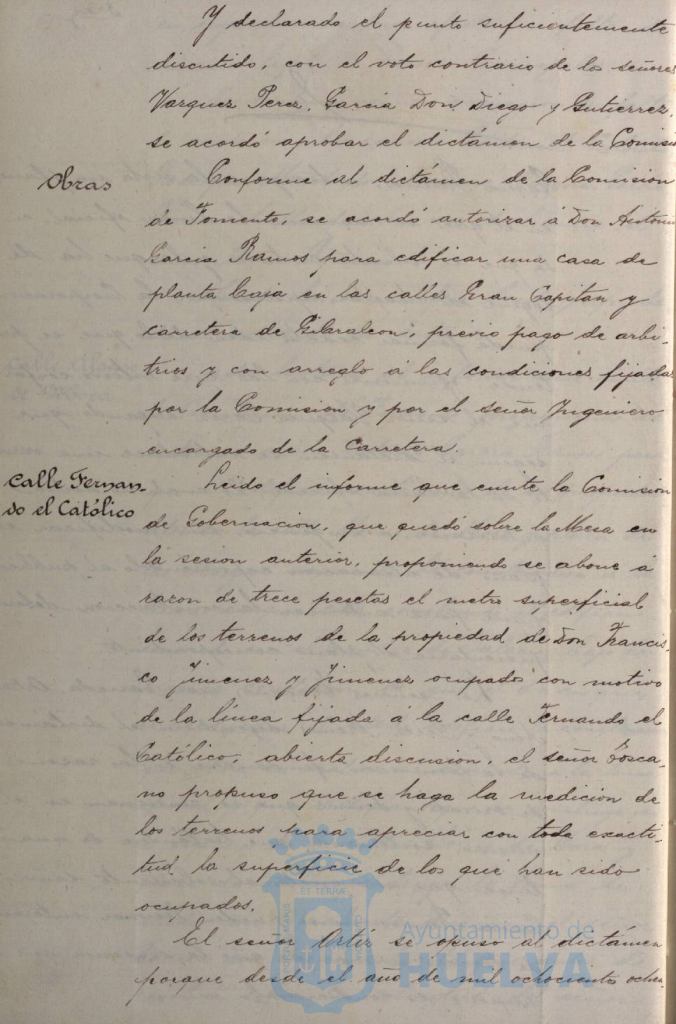 Y declarado el punto suficientemente
discutido, con el voto contrario de los señores
Vazquez Perez, Garcia Don Diego y Gutierrez,
se acordó aprobar el dictámen de la Comisi
Obras
Conforme al dictámen de la Comision
de Fomento, se acordó autorizar á Don Antonio
Garcia Ramos para edificar una casa de
planta baja en las calles Gran Capitan y
carretera de Gibraleon, previo pago de arbi-
trios y con arreglo á las condiciones fijadas
por la Comision y por el señor Ingeniero
encargado de la Carretera.
Calle Fernan-
do el Católico
Leido el informe que emite la Comision
de Gobernacion, que quedó sobre la Mesa en
la sesion anterior, proponiendo se abone á
razon de trece pesetas el metro superficial
de los terrenos de la propiedad de Don Francis-
co Jimenez y Jimenez ocupados con motivo
de la línea fijada á la calle Fernando el
Católico, abierta discusion, el señor Tosca-
no propuso que se haga la medicion de
los terrenos para apreciar con toda exacti-
tud la superficie de los que han sido
ocupados.
El señor Ortiz se opuso al dictámen
porque desde el año de mil ochocientos ochen-
Ayuntamiento de
HUELVA